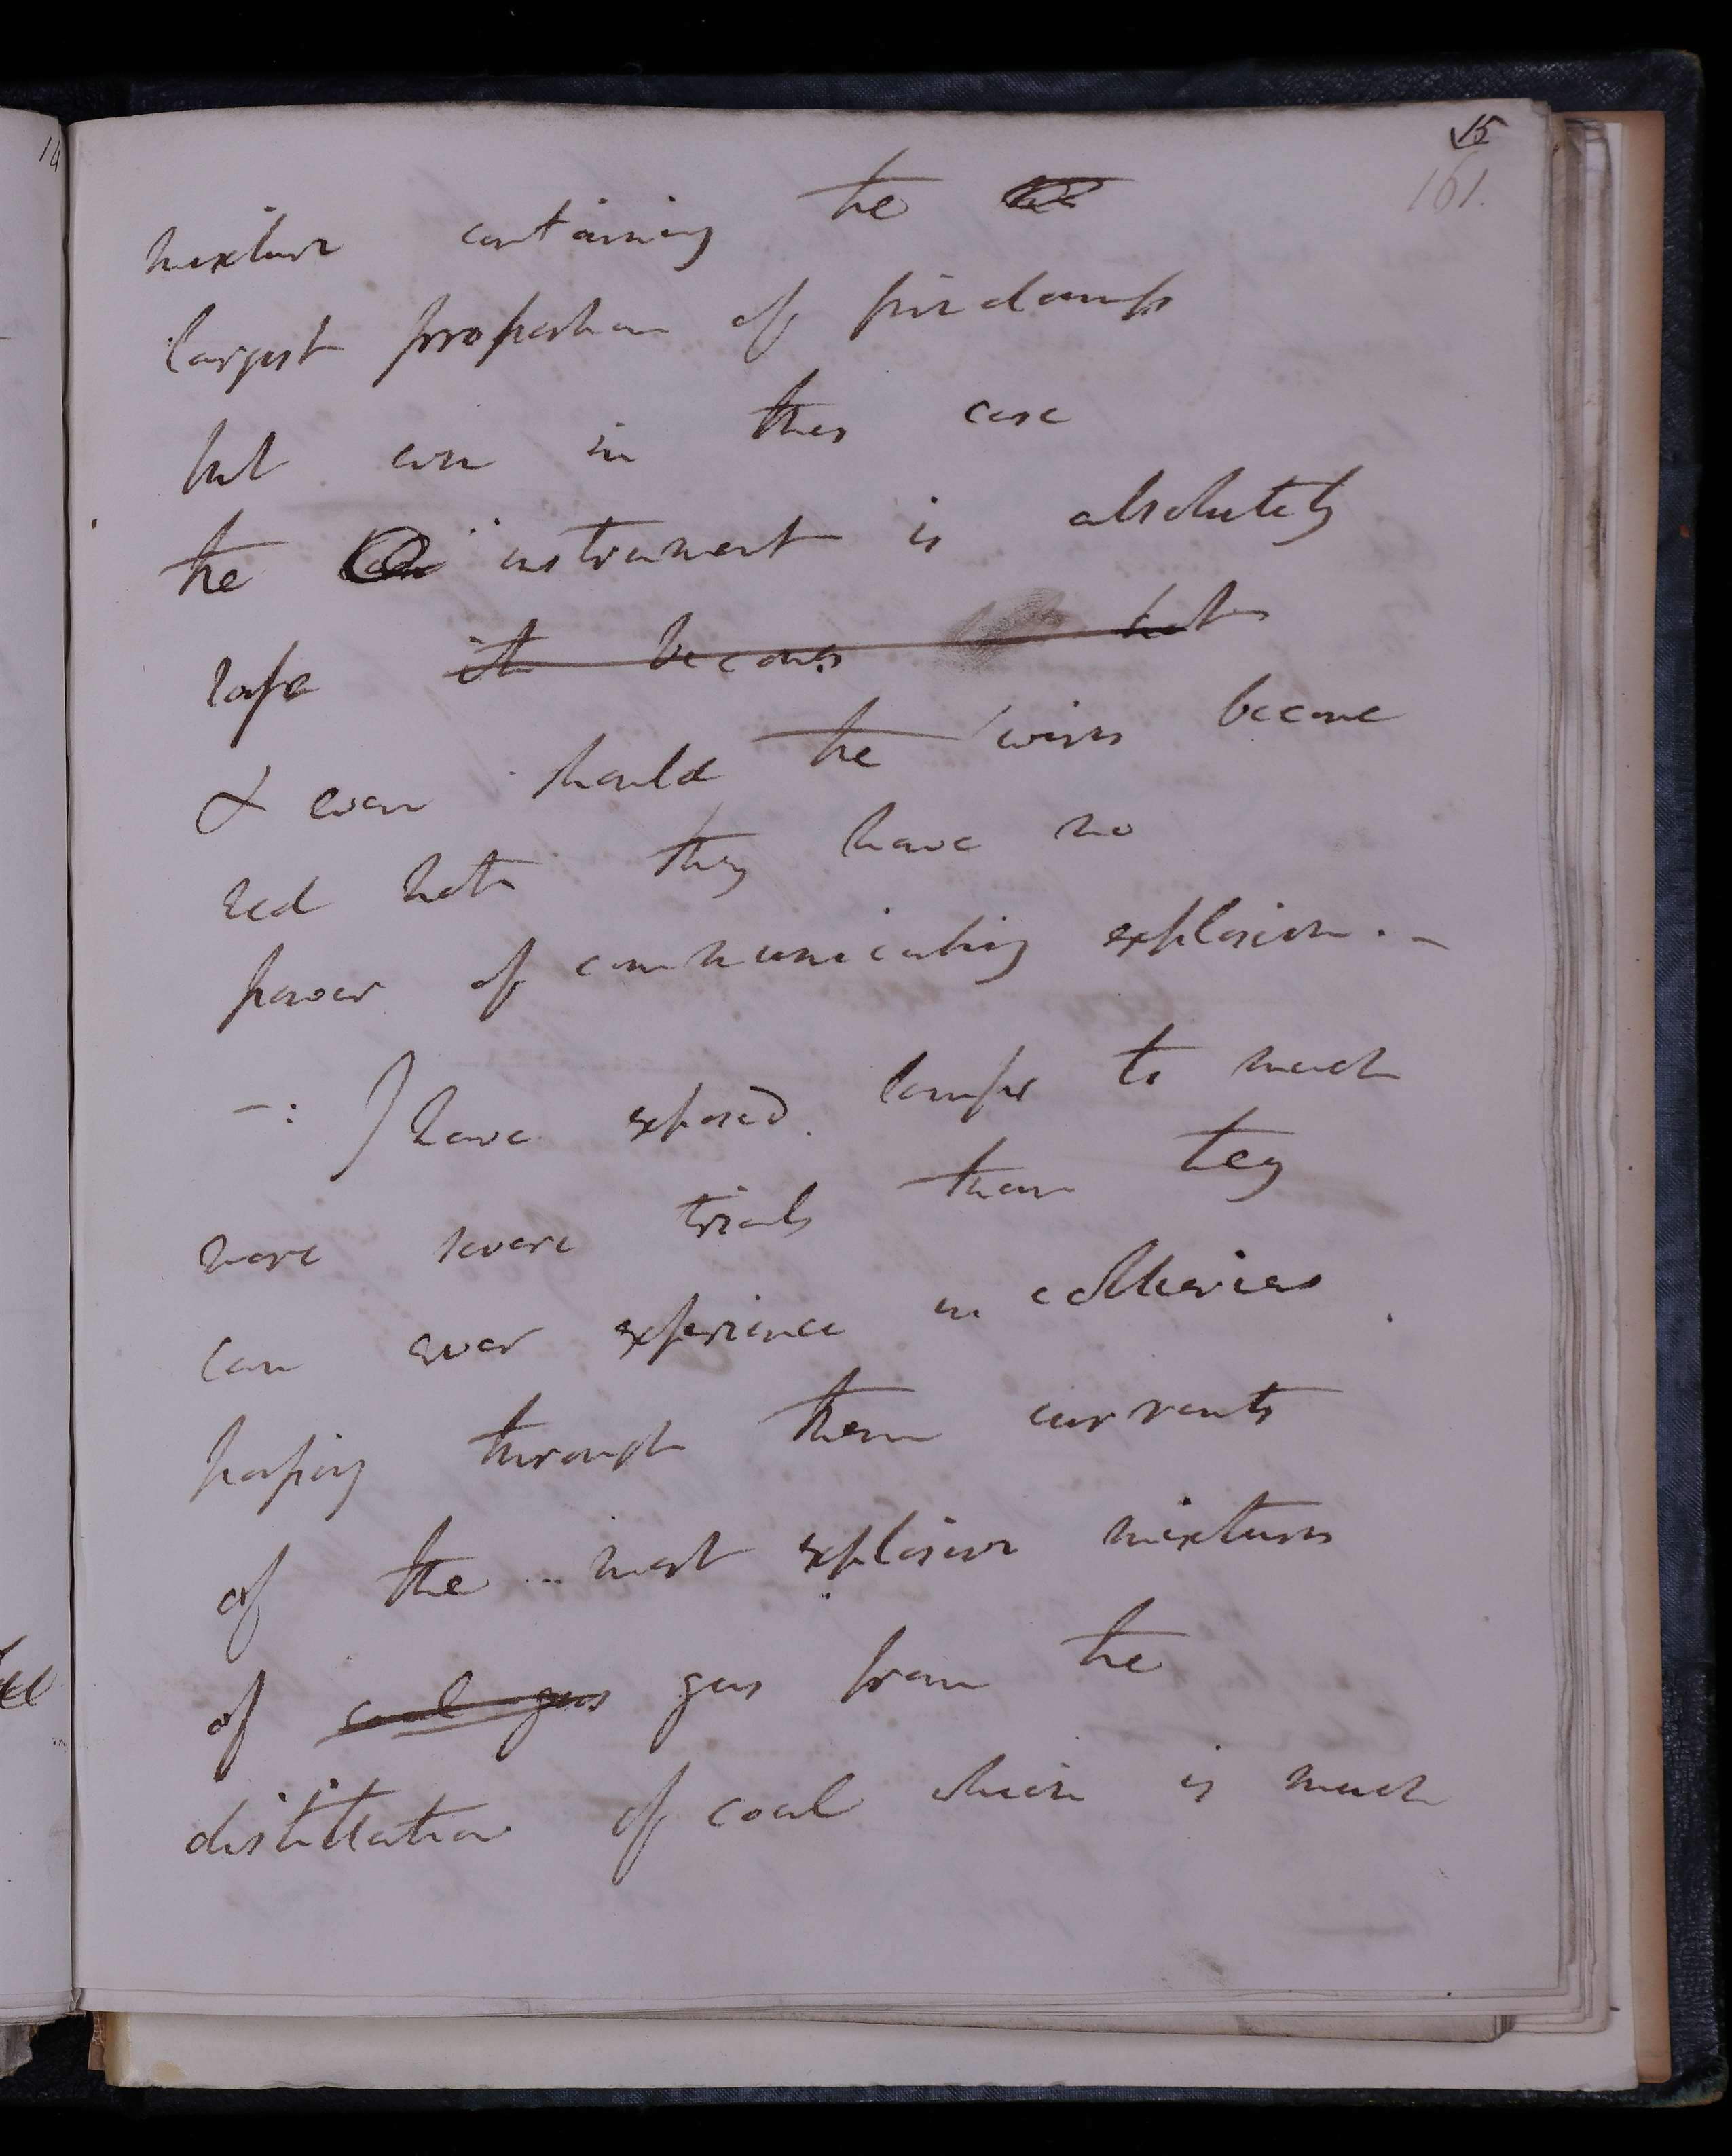 15
161.
mixture containing the
largest proportion of fire damp
but even in this case
the instrument is absolutely
safe it becomes hot
& even should the wires become
red hot they have no
power of communicating explosion. —
—: I have exposed lamps to much
more severe trials than they
can ever experience in collieries
passing through them currents
of the most explosive mixtures
of coal gas gas from the
distillation of coal which is much